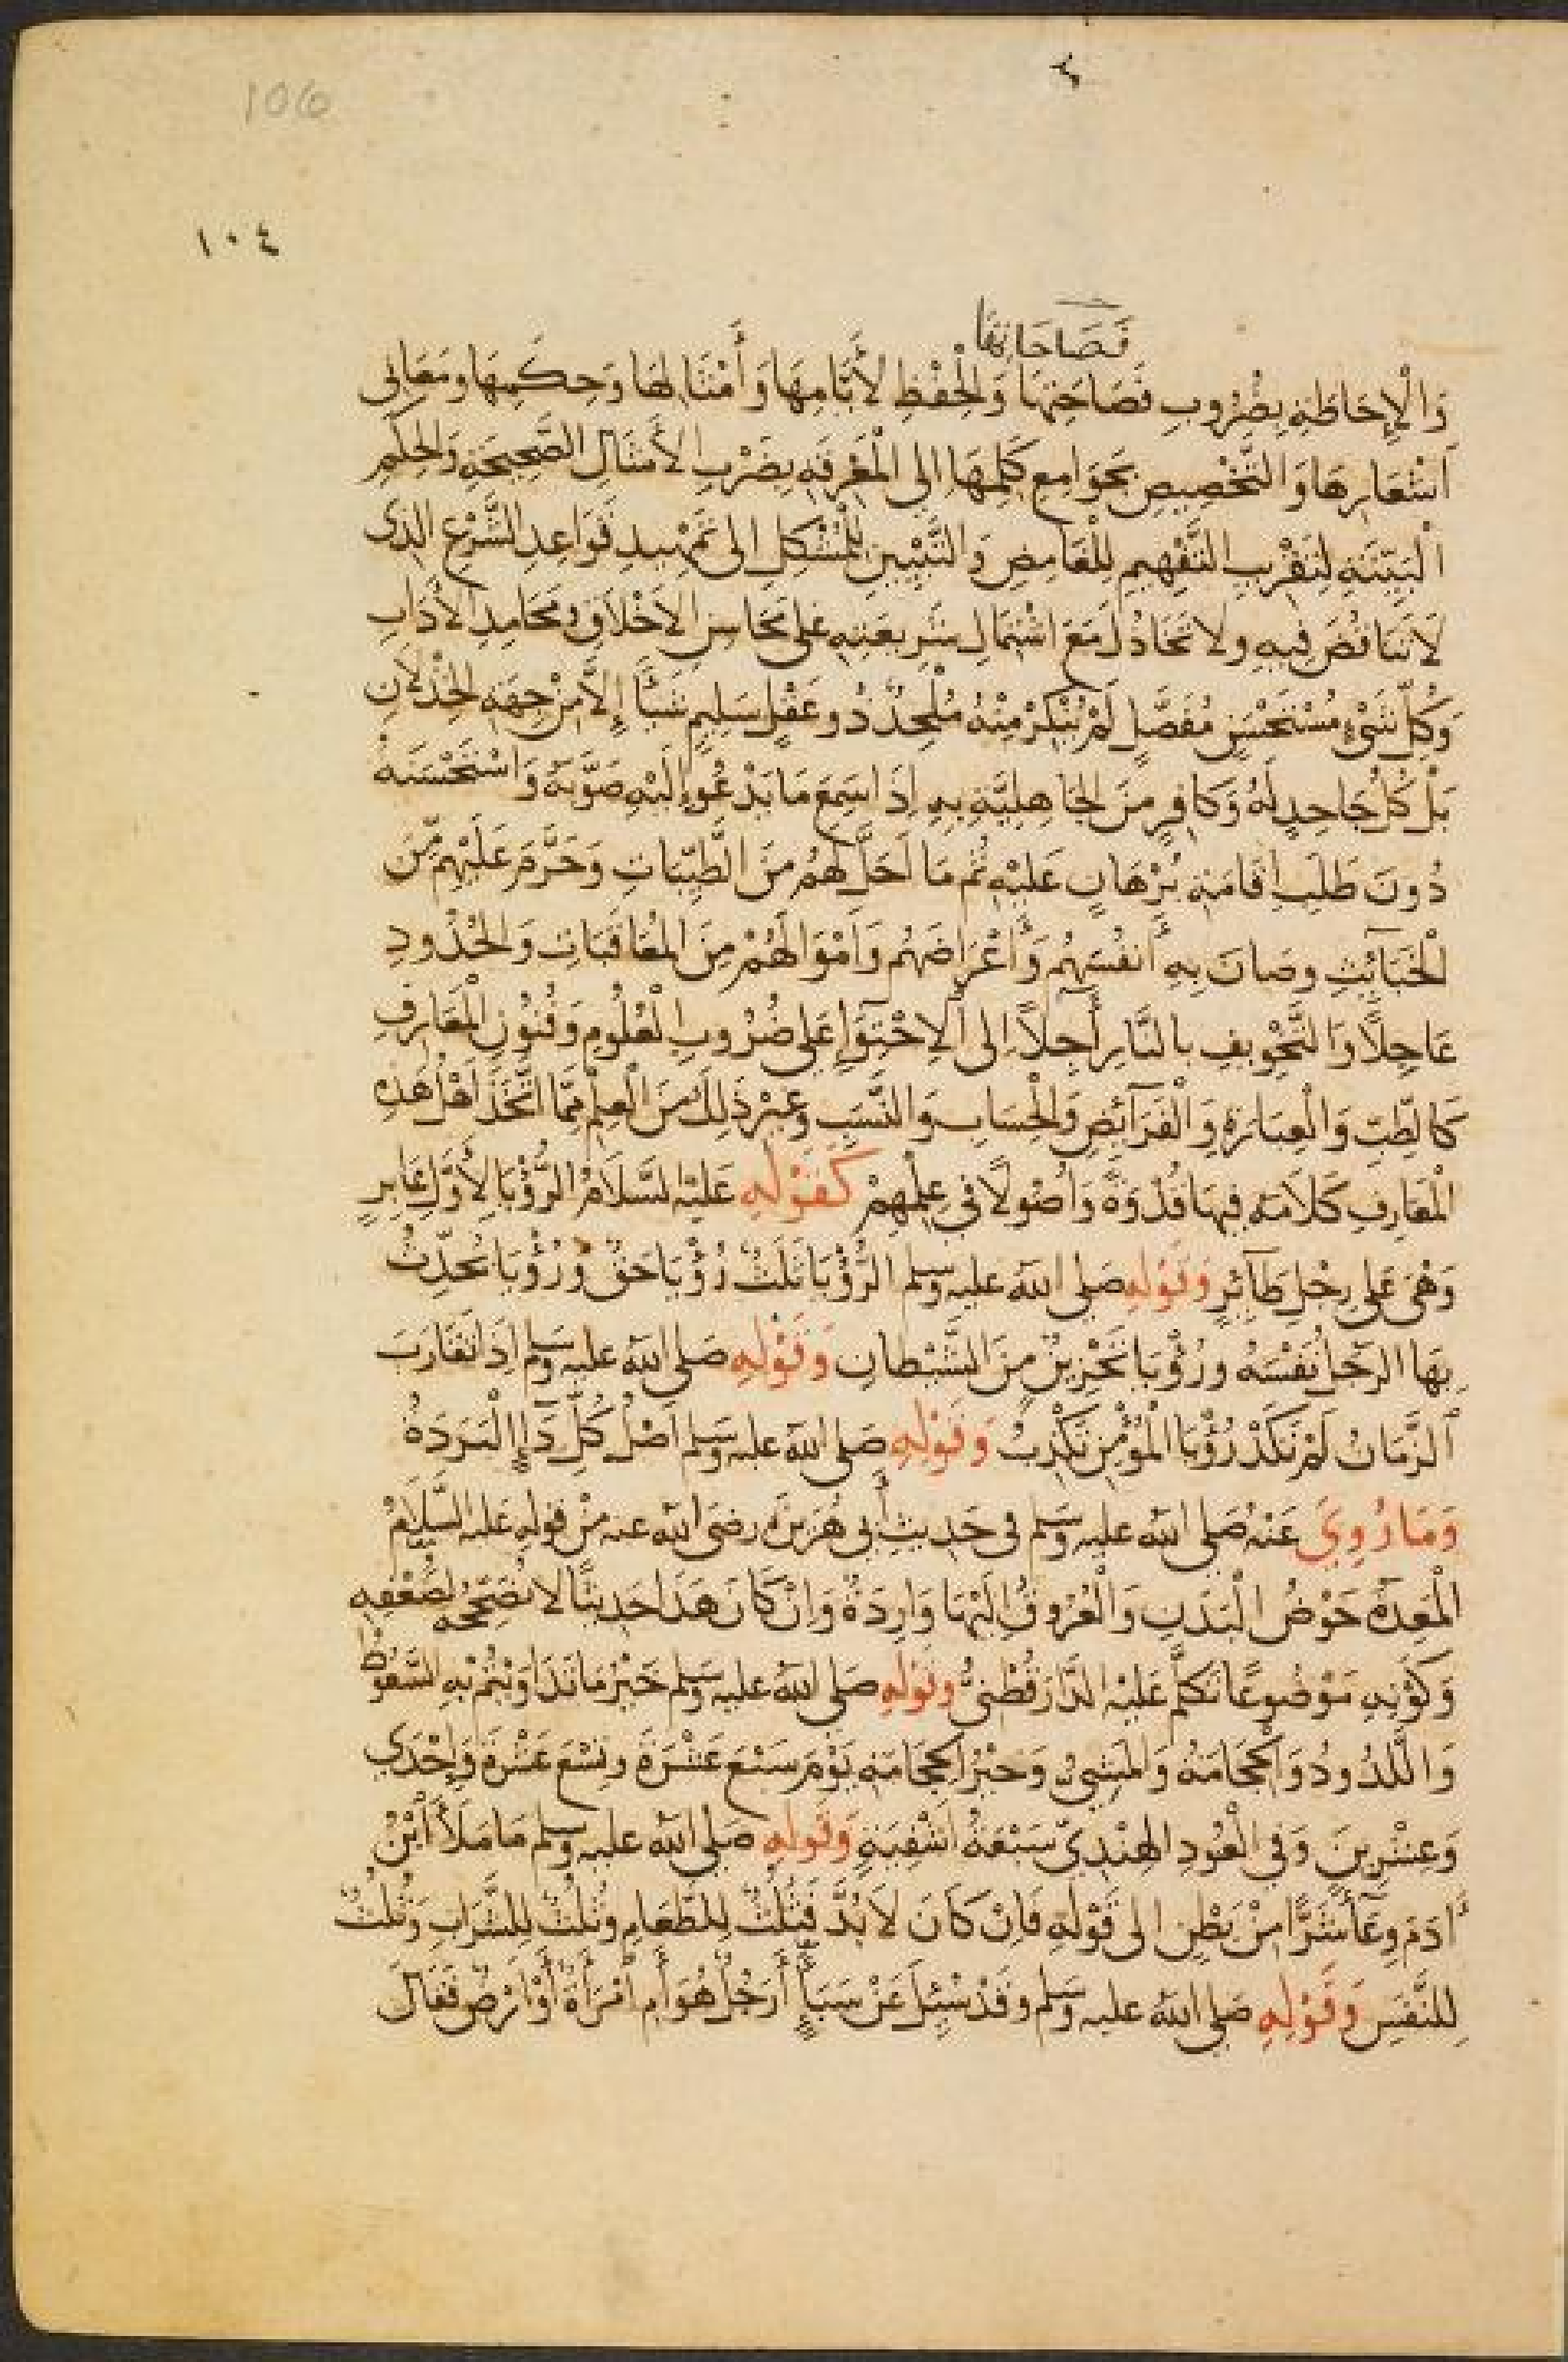 106
١٠٤
فَصَاحَاتِهَا
وَالْإِحَاطَةِ بِضُرُوبِ فَصَاحَتِهَا وَالْحِفْظِ لِأَيَّامِهَا وَأَمْثَالِهَا وَحِكَمِهَا وَمَعَانِي
اَشْعَارِهَا وَالتَّخْصِيصِ بِجَوَامِعِ كَلِمِهَا اِلَى الْمَعْرِفَةِ بِضَرْبِ الْأَمْثَالِ الصَّحِيحَةِ وَالْحِكَمِ
الْبَيِّنَةِ لِتَقْرِيبِ التَّفْهِيمِ لِلْغَامِضِ وَالتَّبْيِينِ لِلْمُشْكِلِ اِلَى تَمْهِيدِ قَوَاعِدِ الشَّرْعِ الَّذِى
لَا تَنَاقُضَ فِيهِ وَلَا تَخَاذُلَ مَعَ اشْتِمَالِ شَرِيعَتِهِ عَلَى مَحَاسِنِ الْاَخْلَاقِ وَمَحَامِدِ الْآدَابِ
وَكُلِّ شَىْءٍ مُسْتَحْسَنٍ مُفَصَّلٍ لَمْ يُنْكِرْ مِنْهُ مُلْحِدٌ ذُو عَقْلٍ سَلِيمٍ شَيْئًا إِلَّا مِنْ جِهَةِ الْخِذْلَانِ
بَلْ كُلُّ جَاحِدٍ لَهُ وَكَافِرٍ مِنَ الْجَاهِلِيَّةِ بِهِ اِذَا سَمِعَ مَا يَدْعُو إِلَيْهِ صَوَّبَهُ وَاسْتَحْسَنَهُ
دُونَ طَلَبِ اِقَامَةِ بُرْهَانٍ عَلَيْهِ ثُمَّ مَا اَحَلَّ لَهُمْ مِنَ الطَّيِّبَاتِ وَحَرَّمَ عَلَيْهِمْ مِنَ
الْخَبَآئِثِ وَصَانَ بِهِ أَنْفُسَهُمْ وَأَعْرَاضَهُمْ وَاَمْوَالَهُمْ مِنَ الْمُعَاقَبَاتِ وَالْحُدُودِ
عَاجِلًا وَالتَّخْوِيفِ بِالنَّارِ آجِلًا اِلَى الْاِحْتِوَآءِ عَلَى ضُرُوبِ الْعُلُومِ وَفُنُونِ الْمَعَارِفِ
كَالطِّبِّ وَالْعِبَارَةِ وَالْفَرَآئِضِ وَالْحِسَابِ وَالنَّسَبِ وَغَيْرِ ذَلِكَ مِنَ الْعِلْمِ مِمَّا اتَّخَذَ اَهْلُ هَذِهِ
الْمَعَارِفِ كَلَامَهُ فِيهَا قُدْوَةً وَاُصُولًا فِي عِلْمِهِمْ كَقَوْلِهِ عَلَيْهِ السَّلَامُ الرُّؤْيَا لِأَوَّلِ عَابِرٍ
وَهْىَ عَلَى رِجْلِ طَآئِرٍ وَقَوْلِهِ صَلَّى اللَّهُ عَلَيْهِ وَسَلَّمَ الرُّؤْيَا ثَلَثٌ رُؤْيَا حَقٌّ وَرُؤْيَا يُحَدِّثُ
بِهَا الرَّجُلُ نَفْسَهُ وَرُؤْيَا تَحْزِينٌ مِنَ الشَّيْطَانِ وَقَوْلِهِ صَلَّى اللَّهُ عَلَيْهِ وَسَلَّمَ اِذَا تَقَارَبَ
الزَّمَانُ لَمْ تَكَدْ رُؤْيَا الْمُؤْمِنِ تَكْذِبُ وَقَوْلِهِ صَلَّى اللَّهُ عَلَيْهِ وَسَلَّمَ اَصْلُ كُلِّ دَآءٍ الْبَرَدَةُ
وَمَا رُوِيَ عَنْهُ صَلَّى اللَّهُ عَلَيْهِ وَسَلَّمَ فِى حَدِيثِ أَبِى هُرَيْرَةَ رَضِىَ اللَّهُ عَنْهُ مِنْ قَوْلِهِ عَلَيْهِ السَّلَامُ
الْمَعِدَةُ حَوْضُ الْبَدَنِ وَالْعُرُوقُ اِلَيْهَا وَارِدَةٌ وَاِنْ كَانَ هَذَا حَدِيثًا لَا نُصَحِّحُهُ لِضَعْفِهِ
وَكَوْنِهِ مَوْضُوعًا تَكَلَّمَ عَلَيْهِ الدَّارَقُطْنِىُّ وَقَوْلِهِ صَلَّى اللَّهُ عَلَيْهِ وَسَلَّمَ خَيْرُ مَا تَدَاوَيْتُمْ بِهِ السَّعُوطُ
وَاللَّدُودُ وَالْحِجَامَةُ وَالْمَشِىُّ وَخَيْرُ الْحِجَامَةِ يَوْمَ سَبْعَ عَشْرَةَ وَتِسْعَ عَشْرَةَ وَاِحْدَى
وَعِشْرِينَ وَفِي الْعُودِ الْهِنْدِىِّ سَبْعَةُ اَشْفِيَةٍ وَقَوْلِهِ صَلَّى اللَّهُ عَلَيْهِ وَسَلَّمَ مَا مَلَأَ ابْنُ
آدَمَ وِعَآءً شَرًّا مِنْ بَطْنٍ اِلَى قَوْلِهِ فَاِنْ كَانَ لَا بُدَّ فَثُلُثٌ لِلطَّعَامِ وَثُلُثٌ لِلشَّرَابِ وَثُلُثٌ
لِلنَّفَسِ وَقَوْلِهِ صَلَّى اللَّهُ عَلَيْهِ وَسَلَّمَ وَقَدْ سُئِلَ عَنْ سَبَأٍ أَرَجُلٌ هُوَ أَمِ امْرَأَةٌ أَوْ اَرْضٌ فَقَالَ